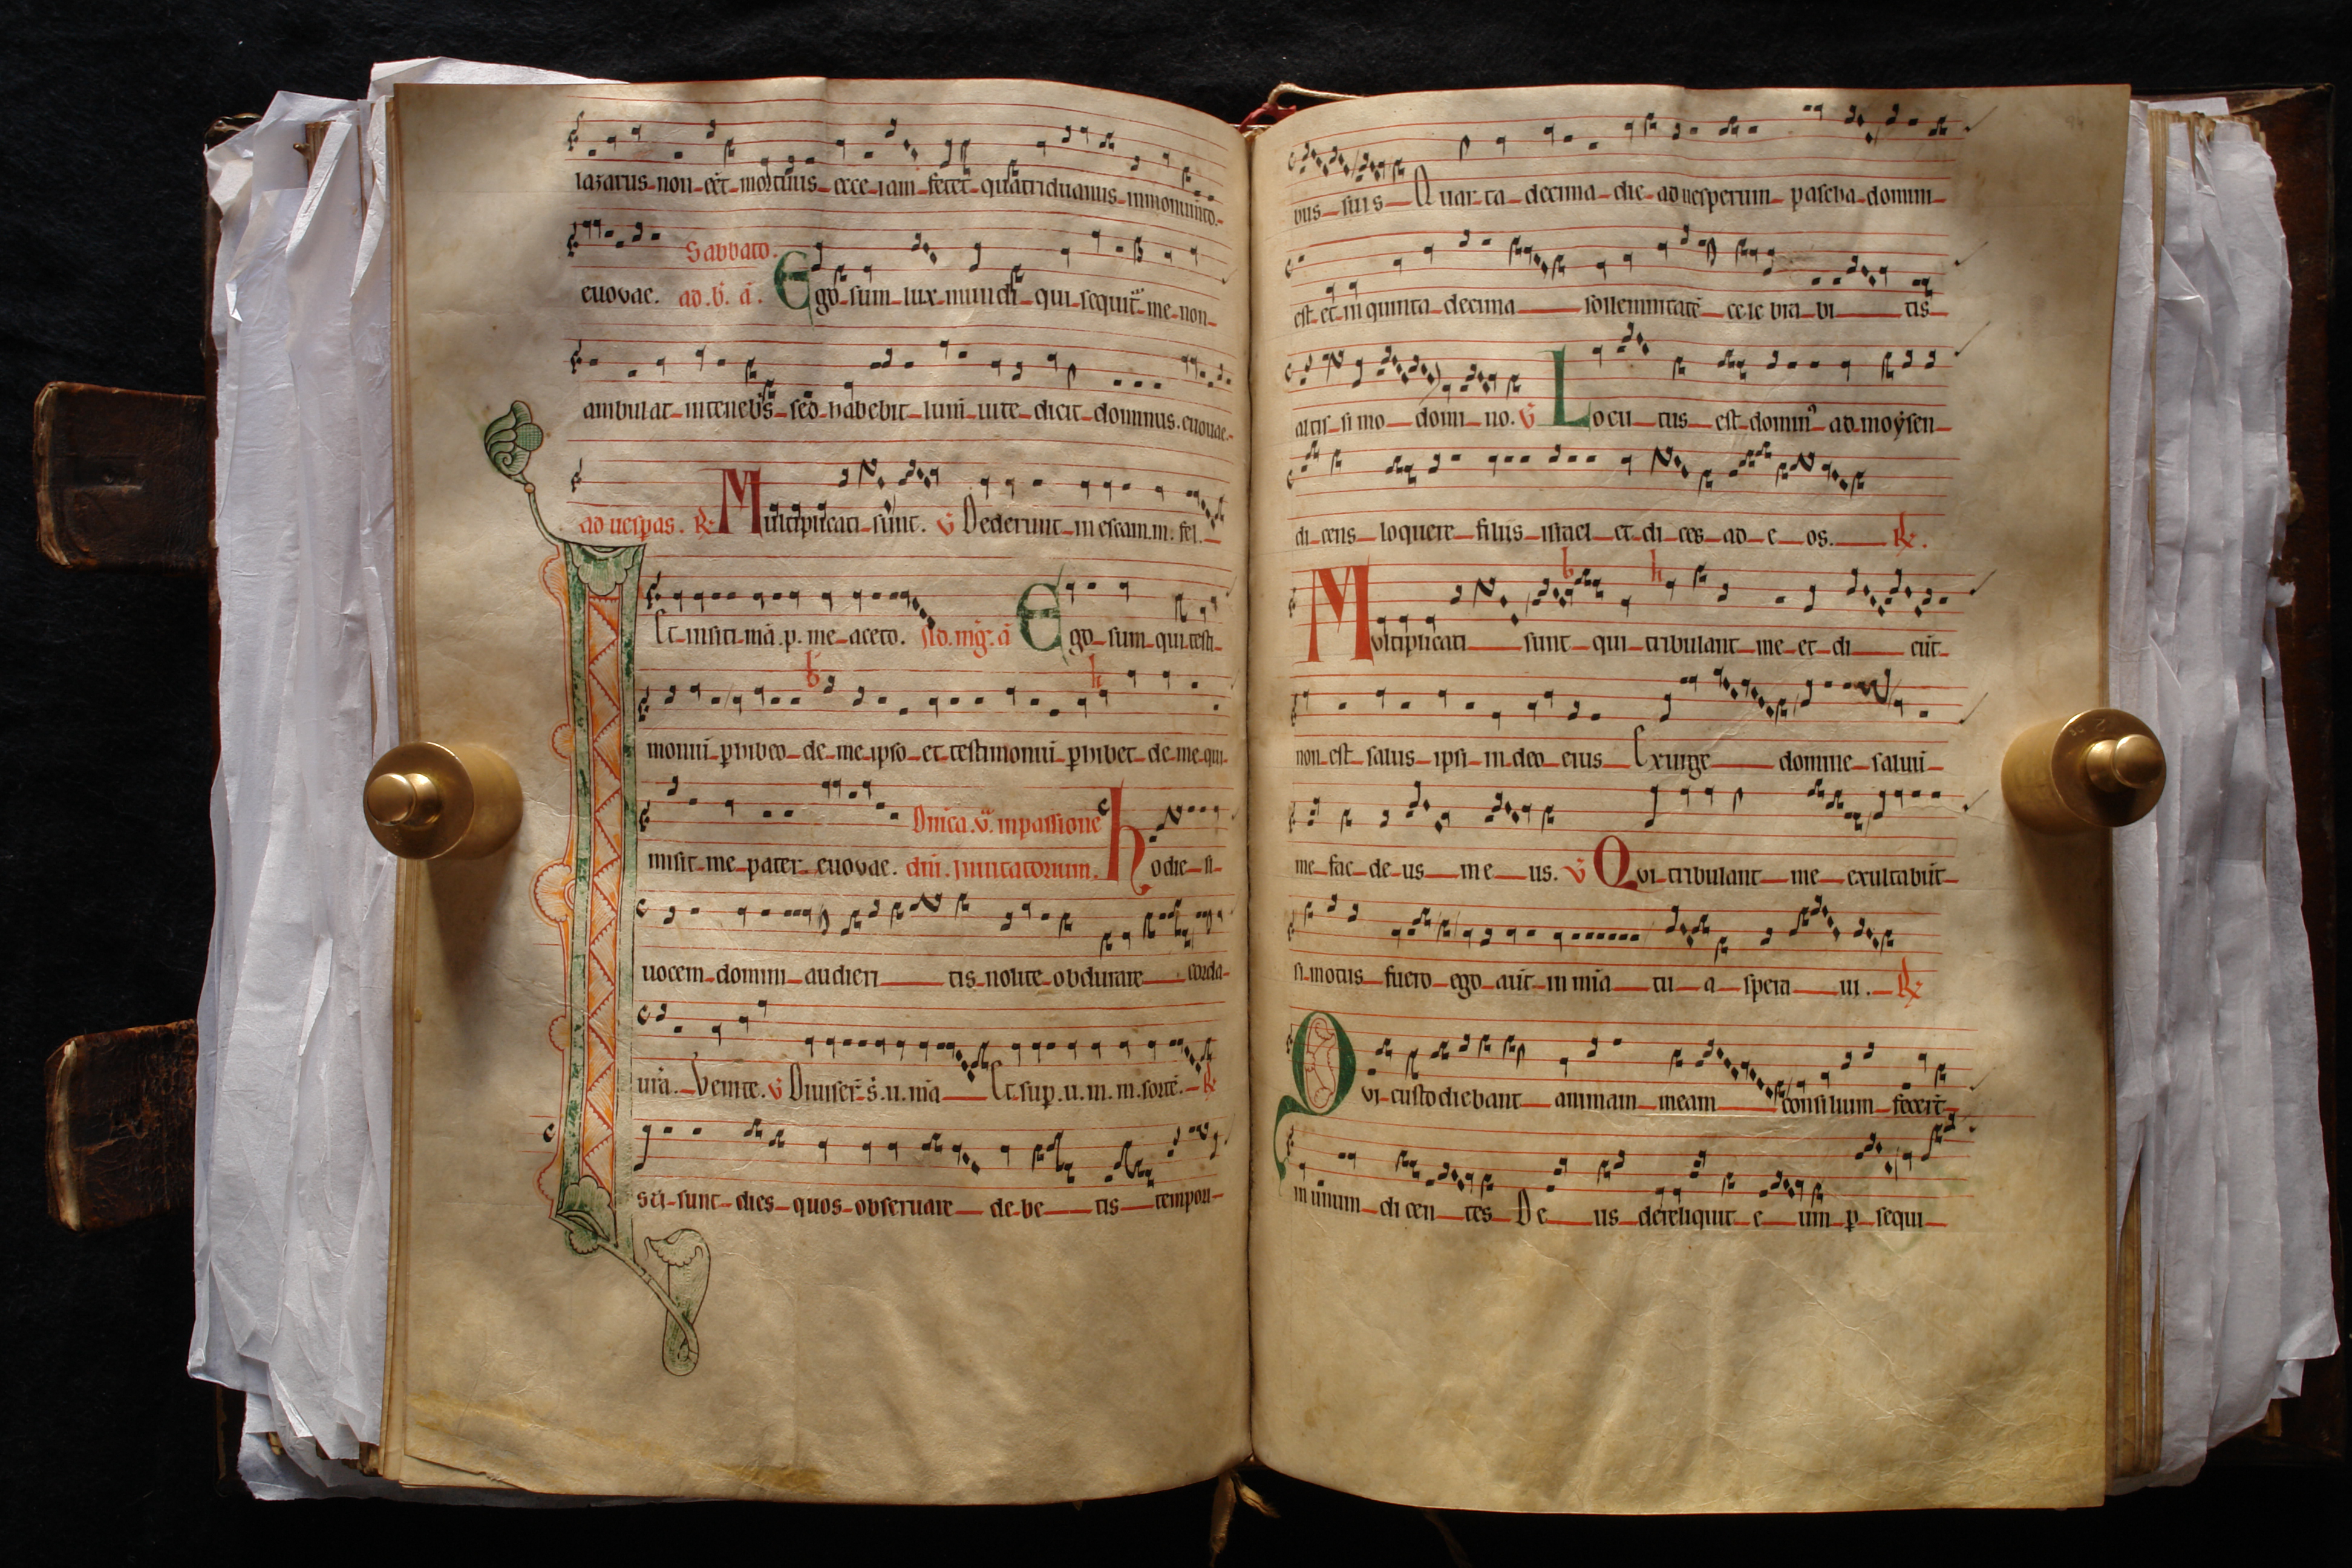 lazarus non est mortuus ecce iam fetet quatriduanus in monumto
euovae. Sabbato. ad .b. a. Ego sum lux mundi qui sequit me non
ambulat in tenebs sed habebit lum uite dicit dominus. euouae.
ad uespas. R Multiplicati sunt. V Dederunt in escam. m. fel.
Et in siti mā p. me aceto. Ad. mg. ā Ego sum qui testi
moniū phibeo de me ipso et testimoniū phibet de me qui
misit me pater euovae. Dnica .v. in passione
diū. Inuitatorium. hodie si
uocem domini audieri tis nolite obdurare corda
ura. Venite. V Diuiser s. u. mā Et sup. u. m. m. sorte. R
Isti sunt dies quos obseruare de be tis tempori
bus suis Quar ta decima die ad uesperum pascha domini
est et in quinta decima sollemnitatē ce le bra bi tis
altis si mo domi no. V Locu tus est domin ad moysen
di cens loquere filiis israel et di ces ad e os. R.
Multiplicati sunt qui tribulant me et di cūt
non est salus ipsi in deo eius Exurge domine saluū
me fac de us me us. V Qui tribulant me exultabūt
si motus fuero ego aūt in mīa tu a spera ui. R
Qui custodiebant animam meam consilium fecert
in unum di cen tes De us dereliquit e um p sequi